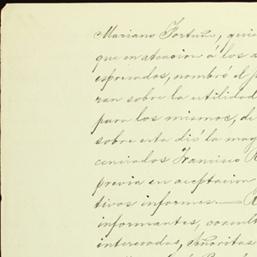 Mariano Fortuño, quie
que en atencion á los a
espresados, nombró el p
ran sobre la utilidad
para los mismos, de
sobre esta dió la mag
Francisco R
previa en aceptacion
tivos informes.— R
informantes, consult
interesadas, señoritas